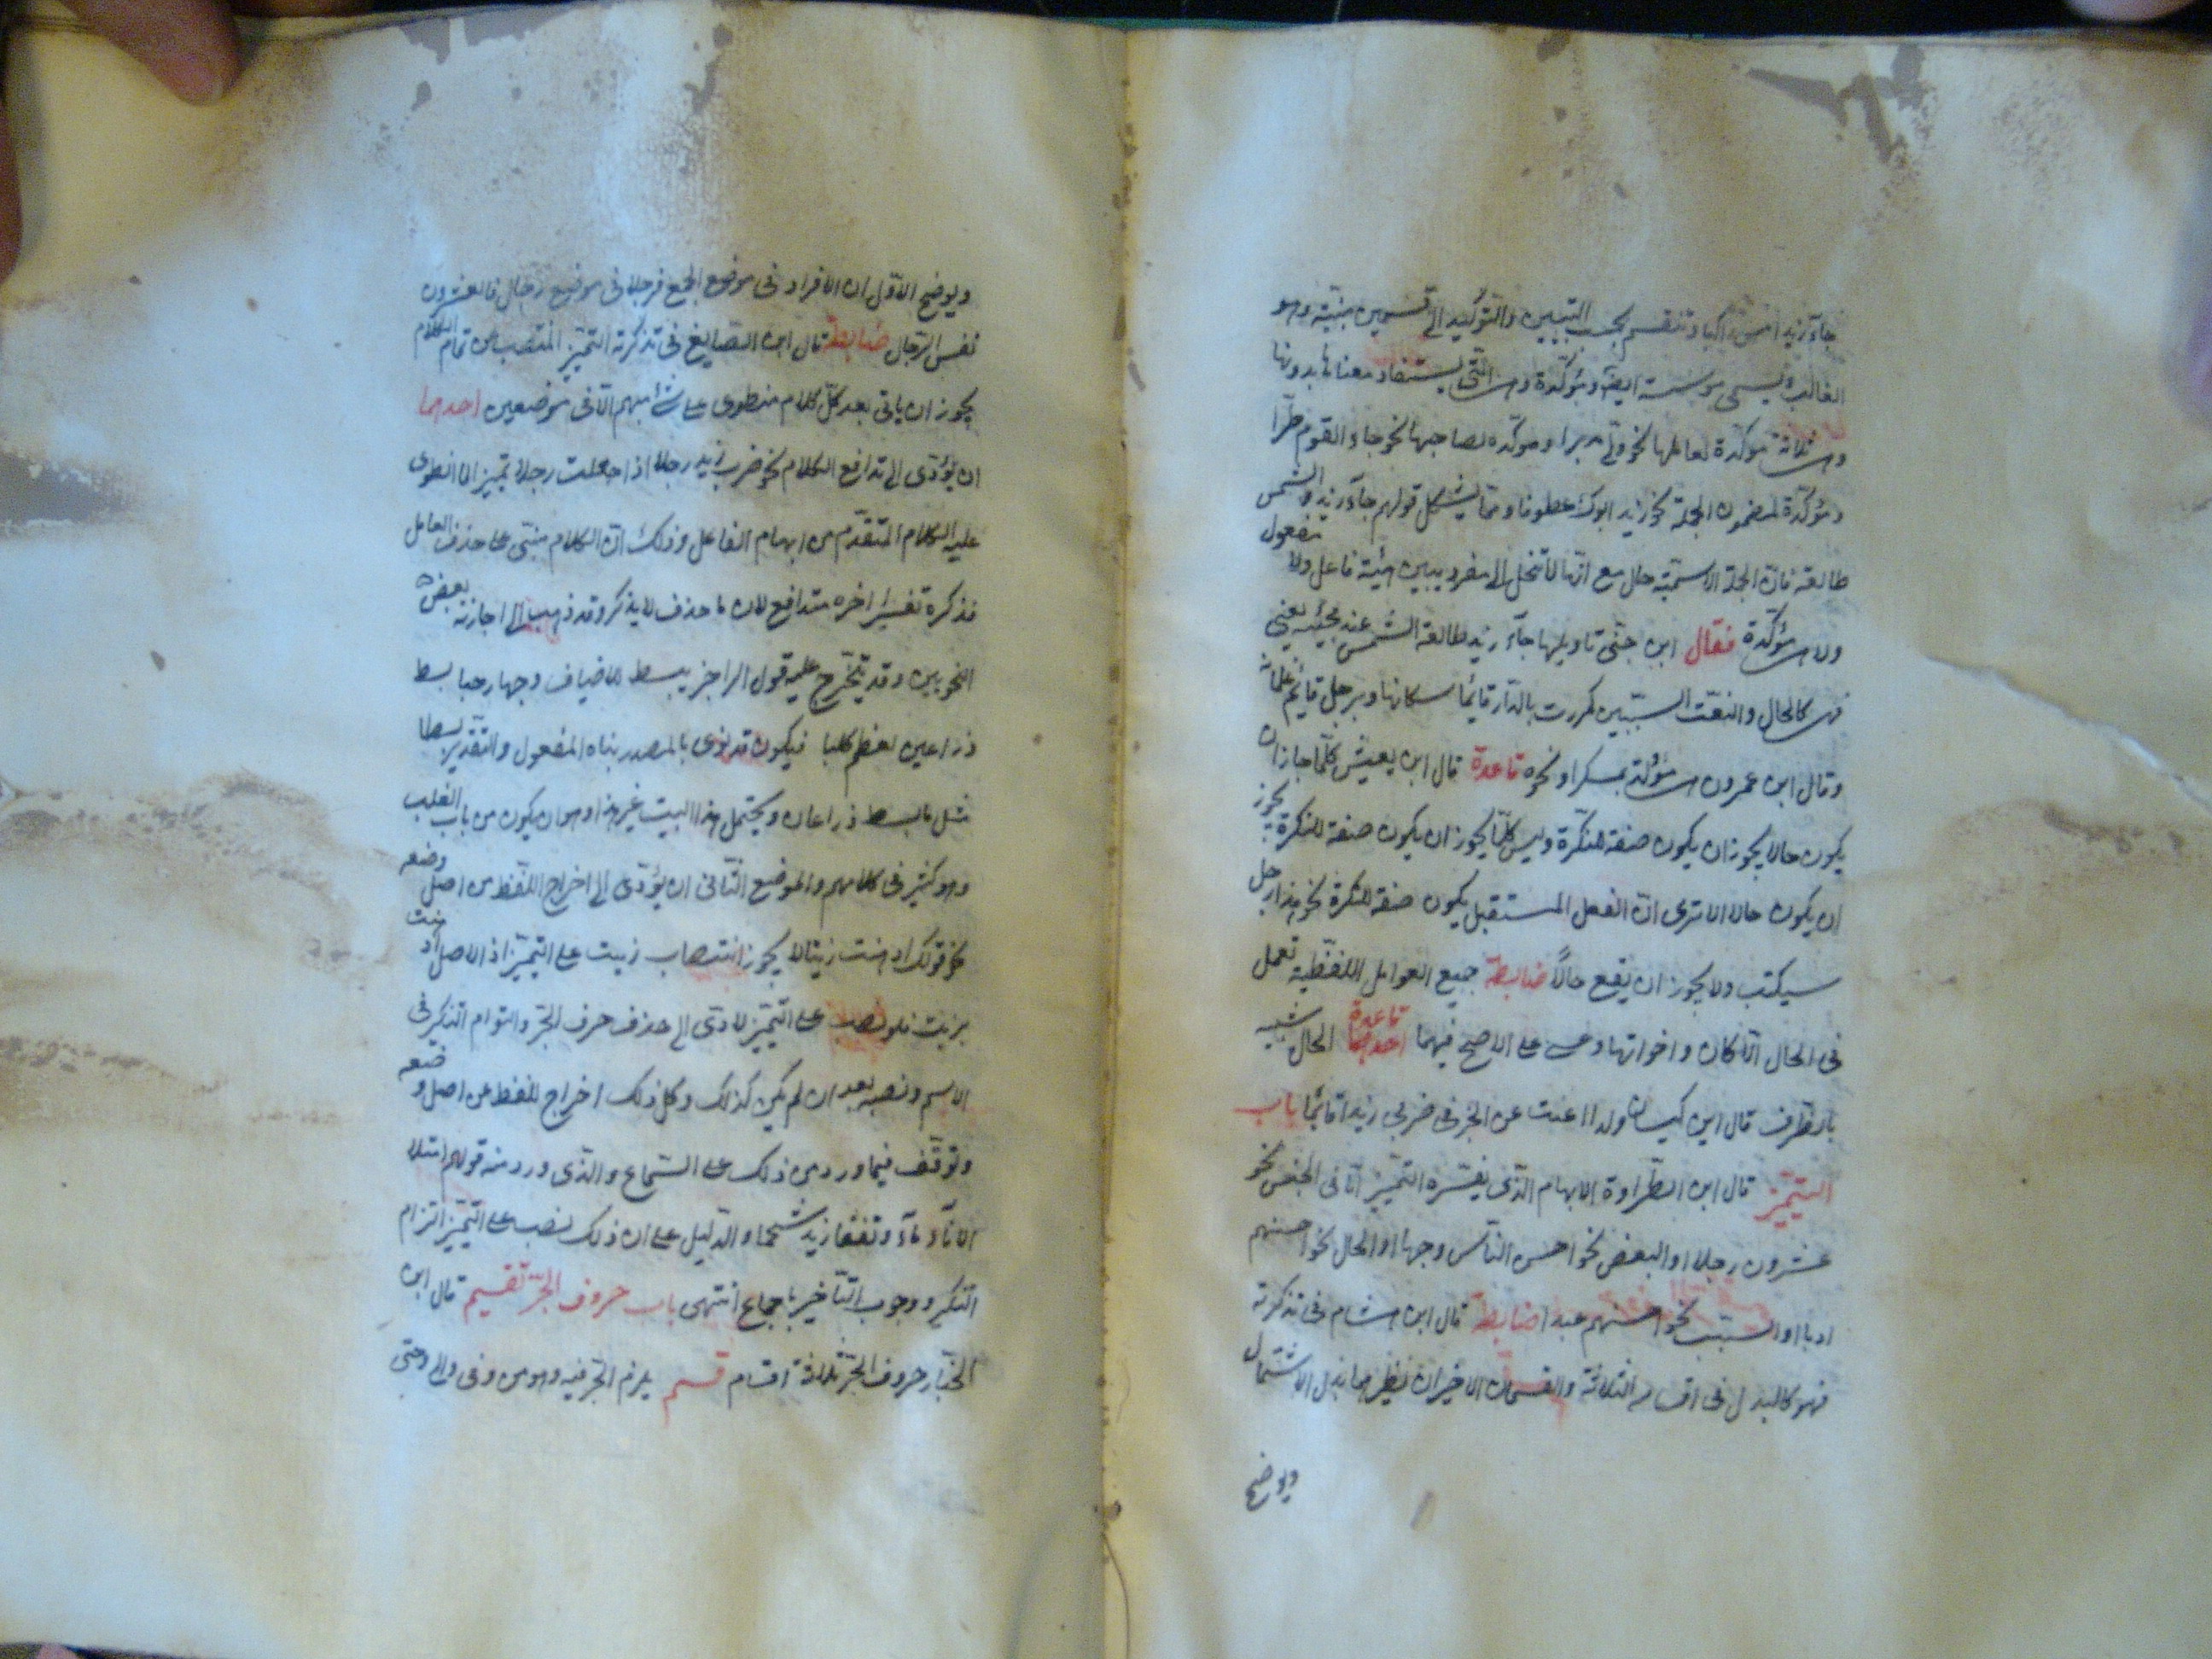 جاء زيد امس راكبا وتنقسم بحسب التبيين والتوكيد الى قسمين مبينة وهو
الغالب ويسمى مؤسسة ايضا ومؤكدة وهي التي يستفاد معناها بدونها
وهي ثلاثة مؤكدة لعاملها نحو ولى مدبرا ومؤكدة لصاحبها نحو جاء القوم طرا
ومؤكدة لمضمون الجملة نحو زيد ابوك عطوفا ومما يشكل قولهم جاء زيد والشمس
طالعة فان الجملة الاسمية حال مع انها لا تنحل الى مفرد يبين هيئة فاعل ولا مفعول
ولا هي مؤكدة فقال ابن جني تاويلها جاء زيد طالعة الشمس عند مجيئه يعني
فهي كالحال والنعت السببيين كمررت بالدار قايما سكانها وبرجل قايم غلمانه
وقال ابن عمرون هي مؤولة بمبكرا ونحوه قاعدة قال ابن يعيش كلما جاز ان
يكون حالا يجوز ان يكون صفة للنكرة وليس كلما يجوز ان يكون صفة للنكرة يجوز
ان يكون حالا الا ترى ان الفعل المستقبل يكون صفة للنكرة نحو هذا رجل
سيكتب ولا يجوز ان يقع حالا ضابطة جميع العوامل اللفظية تعمل
فى الحال الا كان واخواتها وعسى على الاصح فيهما قاعدة احدهما الحال شبيه
بالظرف قال ابن كيسان ولذا اغنت عن الخبر فى ضربى زيدا قائما باب
التمييز قال ابن الطراوة الابهام الذى يفسره التمييز اما فى الجنس نحو
عشرون رجلا او البعض نحو احسن الناس وجها او الحال نحو احسنهم
ادبا او السبب نحو احسنهم عبدا ضابطة قال ابن هشام فى تذكرته
فهو كالبدل فى اقسامه الثلاثة والقسمان الاخيران نظيرهما بدل الاشتمال
ويوضح
ويوضح الاول ان الافراد فى موضع الجمع فرجلا فى موضع رجال فالعشرون
نفس الرجال ضابطة قال ابن الصايغ فى تذكرته التمييز المنتصب عن تمام الكلام
يجوز ان ياتى بعد كل كلام منطوى على شئ مبهم الا فى موضعين احدهما
ان يؤدى الى تدافع الكلام نحو ضرب زيد رجلا اذا جعلت رجلا تمييزا لما انطوى
عليه الكلام المتقدم من ابهام الفاعل وذلك ان الكلام مبنى على حذف العامل
فذكره تفسيرا اخره متدافع لان ما حذف لا يذكر وقد ذهب الى اجازته بعض
النحويين وقد يتخرج عليه قول الراجز يبسط للاضياف وجها رحبا بسط
ذراعين لعظم كلبا فيكون قد نوى بالمصدر بناه المفعول والتقدير بسطا
مثل ما بسط ذراعان ويحتمل هذا البيت غير هذا وهو ان يكون من باب القلب
وهو كثير فى كلامهم والموضع الثانى ان يؤدى الى اخراج اللفظ من اصل وضعه
نحو قولك ادهنت زيتا لا يجوز انتصاب زيت على التمييز اذ الاصل ادهنت
بزيت فلو نصب على التمييز لادى الى حذف حرف الجر والتزام التنكير فى
الاسم ونصبه بعد ان لم يكن كذلك وكل ذلك اخراج للفظ عن اصل وضعه
وتوقف فيما ورد من ذلك على السماع والذى ورد منه قولهم امتلا
الاناء ماء وتفقا زيد شحما والدليل على ان ذلك نصب على التمييز التزام
التنكير ووجوب التاخير باجماع انتهى باب حروف الجر تقسيم قال ابن
الخباز حروف الجر ثلاثة اقسام قسم يلزم الجر فيه وهو من وفى والى وحتى